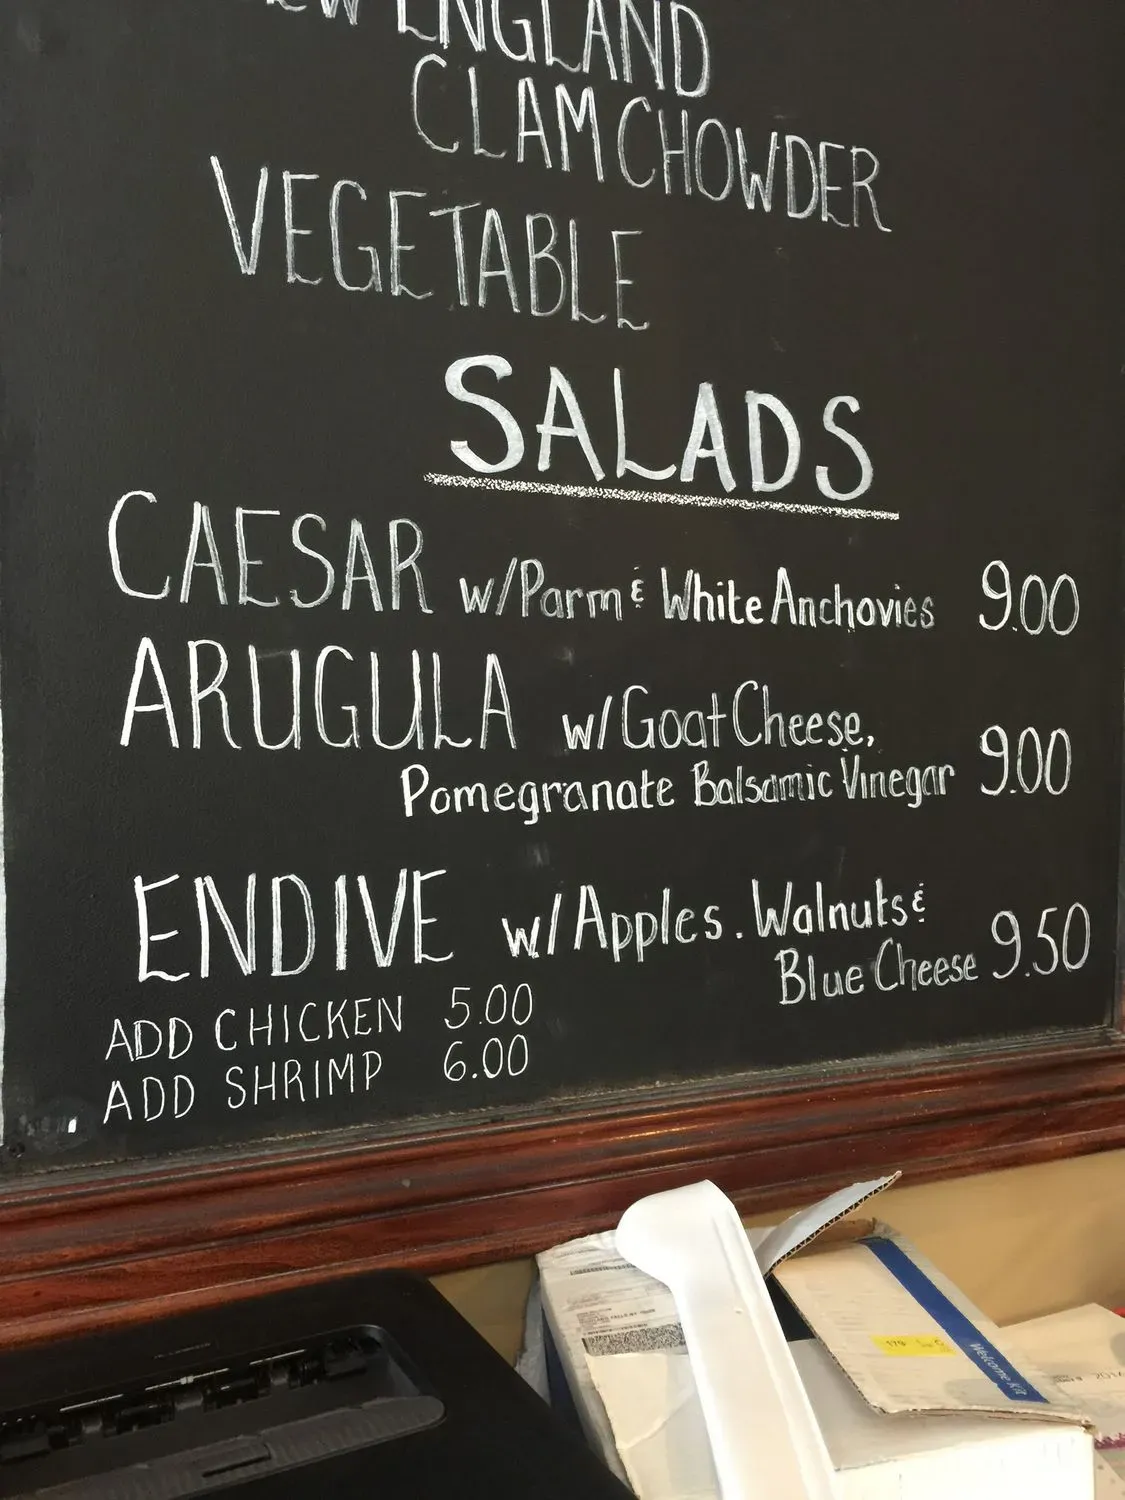 ENGLAND
CLAM CHOWDER
VEGETABLE
SALADS
CAESAR w/Parm & White Anchovies 9.00
ARUGULA w/Goat Cheese,
Pomegranate Balsamic Vinegar 9.00
ENDIVE w/Apples. Walnuts &
Blue Cheese 9.50
ADD CHICKEN 5.00
ADD SHRIMP 6.00
Welcome Kit
179